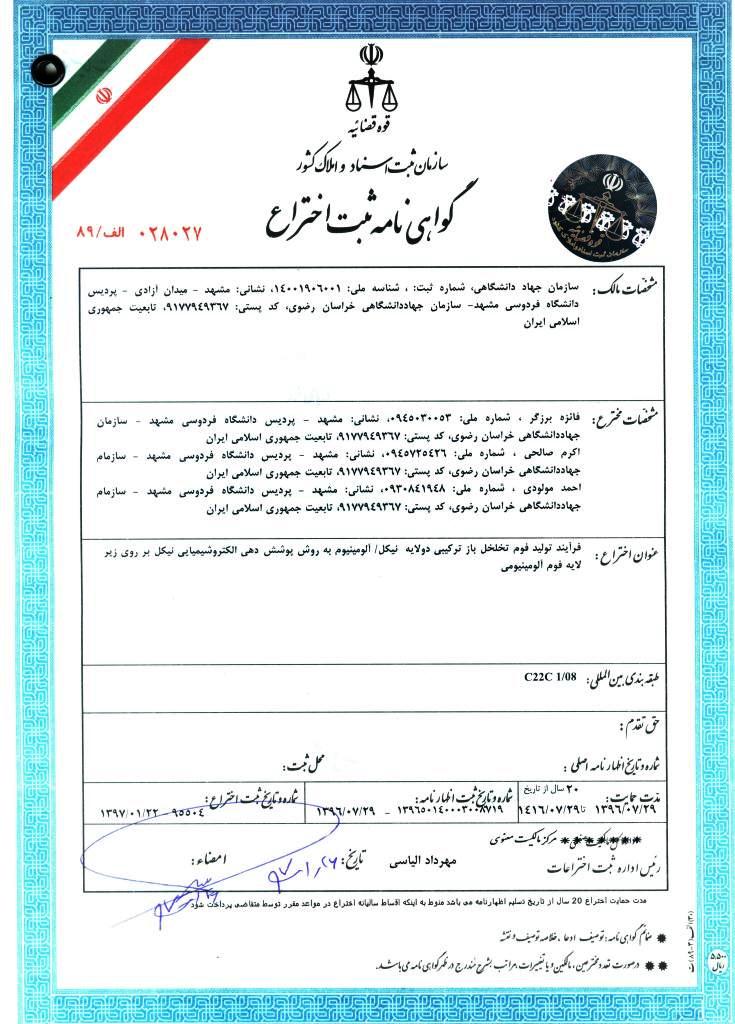 قوه قضائیه
سازمان ثبت اسناد و املاک کشور
گواهی نامه ثبت اختراع
۰۲۸۰۲۷ الف/۸۹
مشخصات مالک:
سازمان جهاد دانشگاهی، شماره ثبت: ، شناسه ملی: ۱۴۰۰۱۹۰۶۰۰۱، نشانی: مشهد - میدان آزادی - پردیس
دانشگاه فردوسی مشهد- سازمان جهاددانشگاهی خراسان رضوی، کد پستی: ۹۱۷۷۹۴۹۳۶۷، تابعیت جمهوری
اسلامی ایران
مشخصات مخترع:
فائزه برزگر ، شماره ملی: ۰۹۴۵۰۳۰۰۵۳، نشانی: مشهد - پردیس دانشگاه فردوسی مشهد - سازمان
جهاددانشگاهی خراسان رضوی، کد پستی: ۹۱۷۷۹۴۹۳۶۷، تابعیت جمهوری اسلامی ایران
اکرم صالحی ، شماره ملی: ۰۹۴۵۷۲۵۴۲۶، نشانی: مشهد - پردیس دانشگاه فردوسی مشهد - سازمام
جهاددانشگاهی خراسان رضوی، کد پستی: ۹۱۷۷۹۴۹۳۶۷، تابعیت جمهوری اسلامی ایران
احمد مولودی ، شماره ملی: ۰۹۳۰۸۴۱۹۴۸، نشانی: مشهد - پردیس دانشگاه فردوسی مشهد - سازمام
جهاددانشگاهی خراسان رضوی، کد پستی: ۹۱۷۷۹۴۹۳۶۷، تابعیت جمهوری اسلامی ایران
عنوان اختراع:
فرآیند تولید فوم تخلخل باز ترکیبی دولایه نیکل/ آلومینیوم به روش پوشش دهی الکتروشیمیایی نیکل بر روی زیر
لایه فوم آلومینیومی
طبقه بندی بین المللی: C22C 1/08
حق تقدم:
شماره و تاریخ اظهارنامه اصلی: محل ثبت:
مدت حمایت: ۲۰ سال از تاریخ
۱۳۹۶/۰۷/۲۹ تا ۱۴۱۶/۰۷/۲۹
شماره و تاریخ ثبت اظهارنامه:
۱۳۹۶۵۰۱۴۰۰۰۳۰۰۸۷۱۹ - ۱۳۹۶/۰۷/۲۹
شماره و تاریخ ثبت اختراع:
۹۵۵۰۴ - ۱۳۹۷/۰۱/۲۲
مرکز مالکیت معنوی
رئیس اداره ثبت اختراعات
مهرداد الیاسی
تاریخ: ۹۷/۱/۲۶
امضاء:
مدت حمایت اختراع 20 سال از تاریخ تسلیم اظهارنامه می باشد منوط به اینکه اقساط سالیانه اختراع در مواعد مقرر توسط متقاضی پرداخت شود
✱ ضمائم گواهی نامه: توصیف، ادعا، خلاصه توصیف و نقشه
✱✱ درصورت تعدد مخترعین، مالکین و یا تغییرات، مراتب بشرح مندرج در ظهر گواهی نامه می باشد.
۵،۵۰۰
ریال